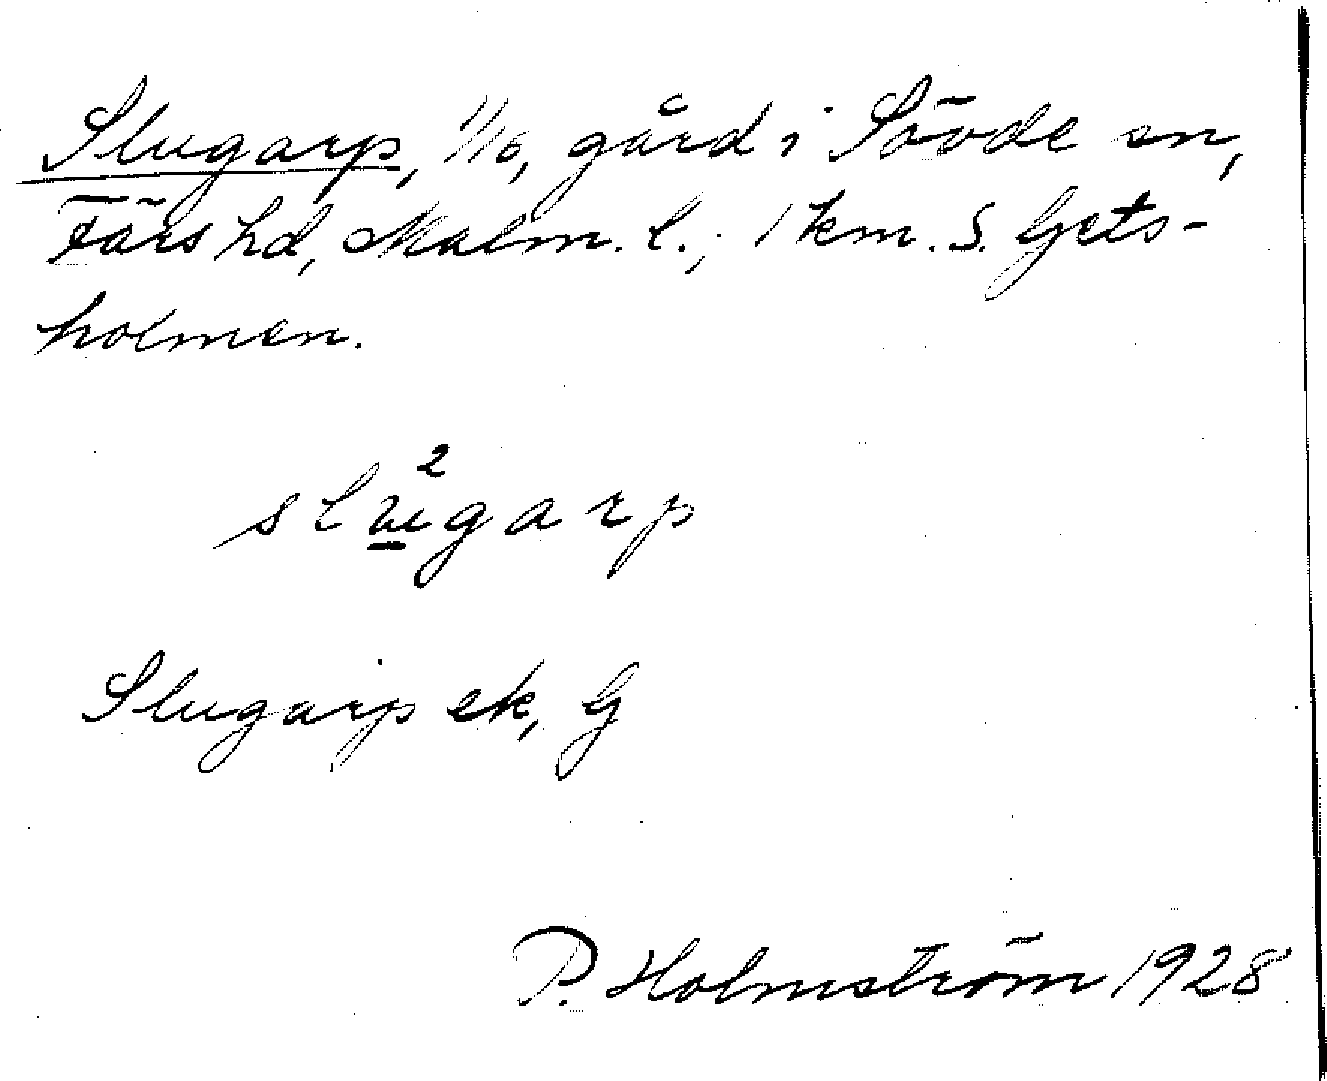 Slugarp, 1/16, gård i Sövde sn,
Färs hd, Malm. l.; 1 km. S. Gets-
holmen.
slu²garp
Slugarp ek, G
P. Holmström 1928